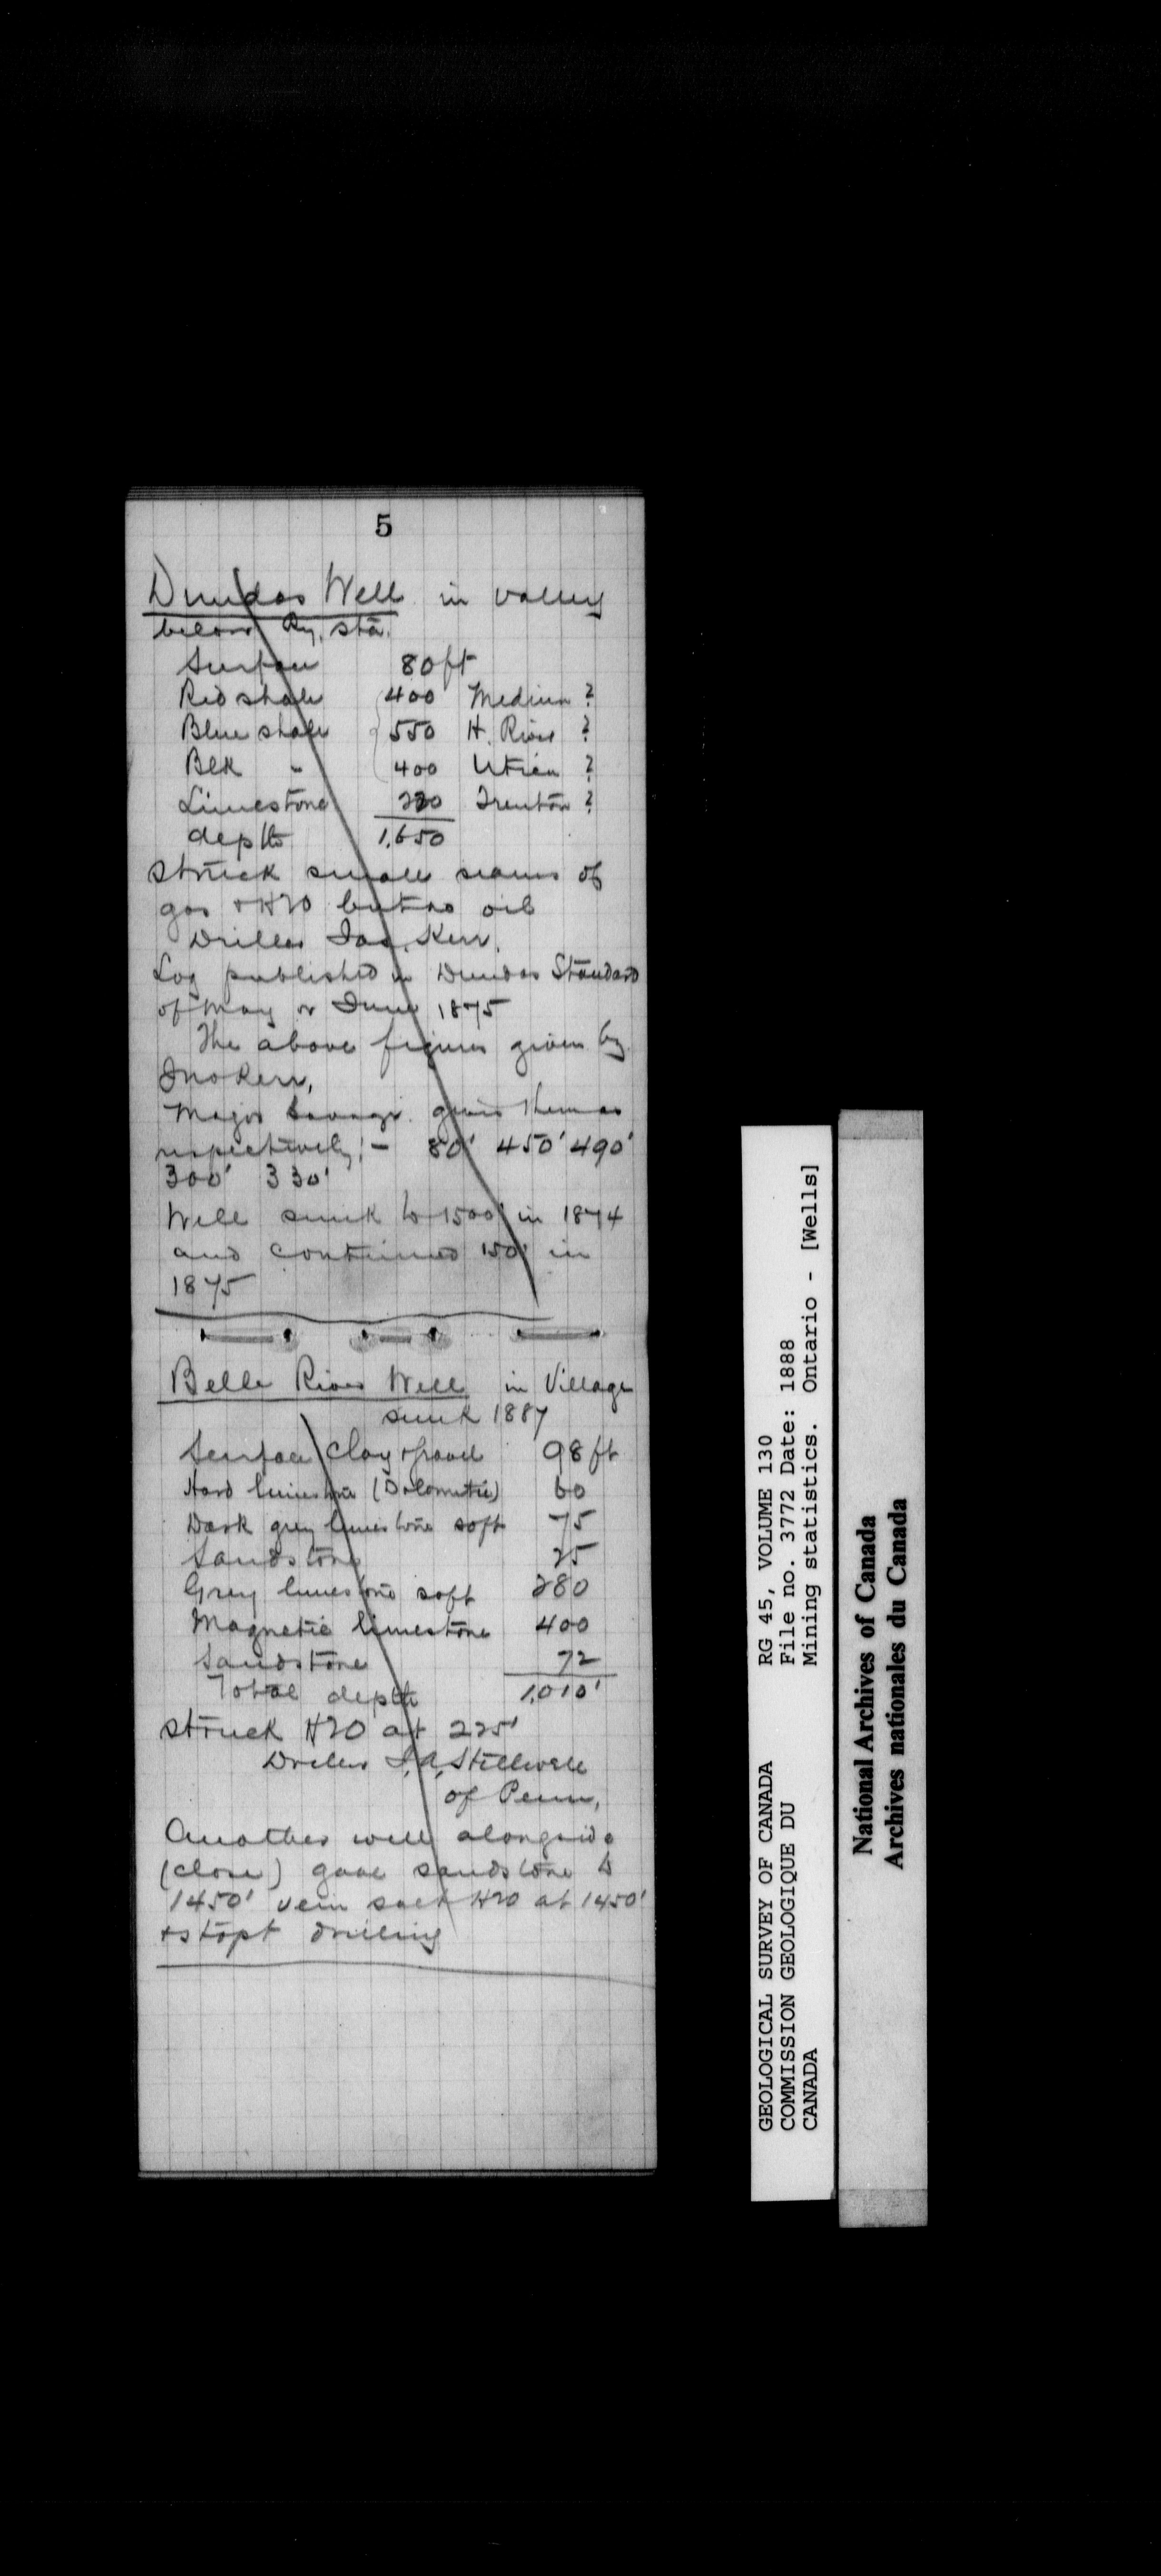 5
Dundas Well in valley
below Ry. sta.
Surface 80 ft
Red shale 400 Medina ?
Blue shale 550 H. River ?
Blk " 400 Utica ?
Limestone 220 Trenton ?
depth 1,650
struck small seams of
gas & H2O but no oil
Driller Jas. Kerr.
Log published in Dundas Standard
of May or June 1875
The above figures given by
Jno Kerr,
Major Savage gives them as
respectively :- 80' 450' 490'
300' 330'
Well sunk to 1500' in 1874
and continued 150' in
1875
Belle River Well in Village
sunk 1887
Surface clay & gravel 98 ft
Hard limestone (Dolomitic) 60
Dark grey limestone soft 75
Sandstone 25
Grey limestone soft 280
Magnetic limestone 400
Sandstone 72
Total depth 1,010'
struck H2O at 225'
Driller J.A. Stillwell
of Penn,
Another well alongside
(close) gave sandstone to
1450' vein salt H2O at 1450'
& stopt drilling
GEOLOGICAL SURVEY OF CANADA RG 45, VOLUME 130
COMMISSION GEOLOGIQUE DU File no. 3772 Date: 1888
CANADA Mining statistics. Ontario - [Wells]
National Archives of Canada
Archives nationales du Canada